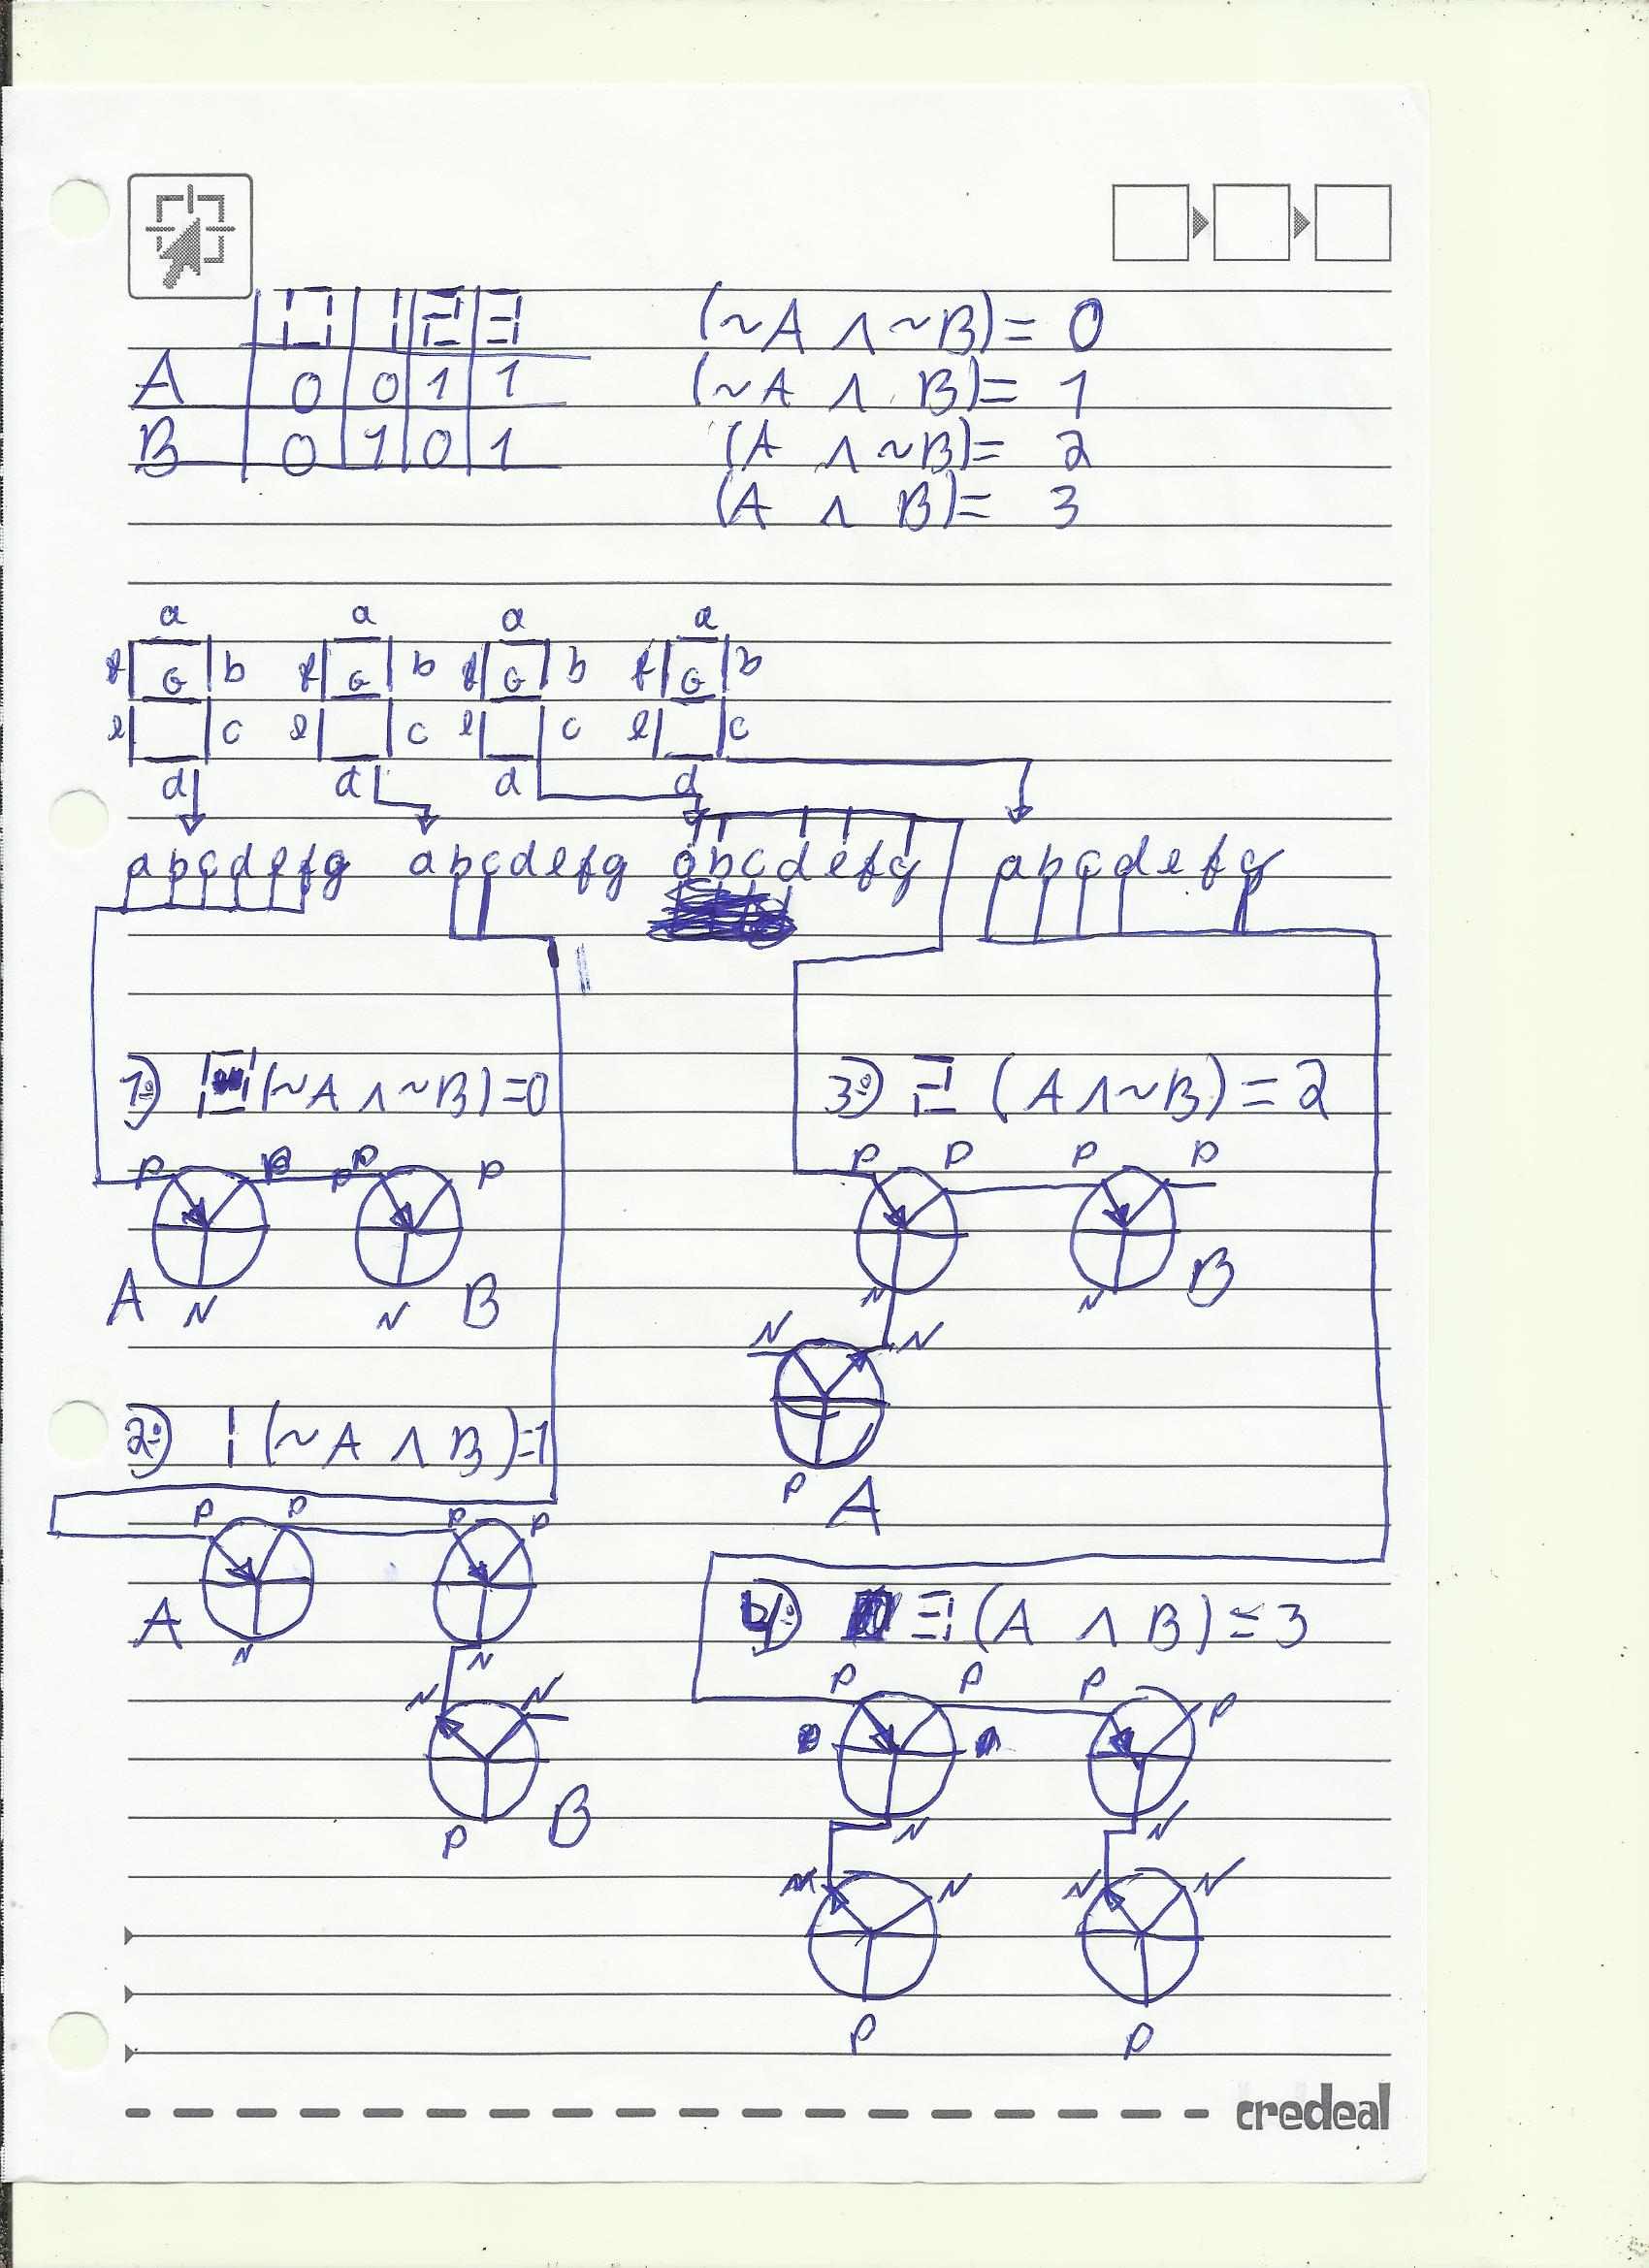 0 1 2 3
A 0 0 1 1
B 0 1 0 1
(~A ∧ ~B) = 0
(~A ∧ B) = 1
(A ∧ ~B) = 2
(A ∧ B) = 3
a a a a
f G b f G b f G b f G b
e c e c e c e c
d d d d
abcdefg abcdefg abcdefg abcdefg
1º) 0 (~A ∧ ~B) = 0
P P P P
A N N B
2º) 1 (~A ∧ B) = 1
P P P P
A N N
N N
P B
3º) 2 (A ∧ ~B) = 2
P P P P
N N B
N N
P A
4º) 3 (A ∧ B) = 3
P P P P
N N
N N N
P P
credeal